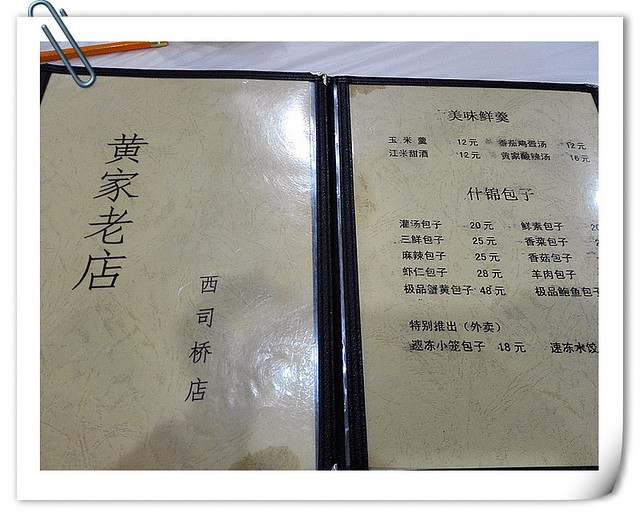 黄家老店
西司桥店
美味鲜羹
玉米羹 12元 番茄鸡蛋汤 12元
江米甜酒 12元 黄家酸辣汤 16元
什锦包子
灌汤包子 20元 鲜素包子 20
三鲜包子 25元 香菜包子 2
麻辣包子 25元 香菇包子
虾仁包子 28元 羊肉包子
极品蟹黄包子 48元 极品鲍鱼包子
特别推出（外卖）
速冻小笼包子 18元 速冻水饺